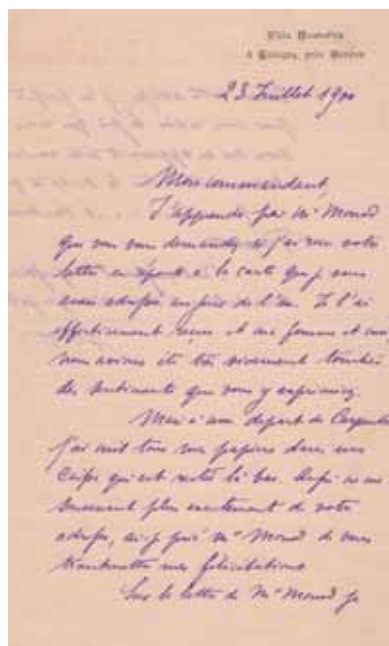 Villa Hauterive
à Cologny, près Genève
23 Juillet 1900
Mon commandant,
J'apprends par Mr Monod
que vous vous demandez si j'ai reçu votre
lettre en réponse à la carte que je vous
avais adressée au jour de l'an. Je l'ai
effectivement reçue et ma femme et moi
nous avions été très vivement touchés
des sentiments que vous y exprimiez.
Mais à mon départ de Carpentras
j'ai mis tous mes papiers dans une
caisse qui est restée là bas. Aussi ne me
souvenant plus exactement de votre
adresse, ai-je prié Mr Monod de vous
transmettre mes félicitations.
Sur la lettre de Mr Monod je